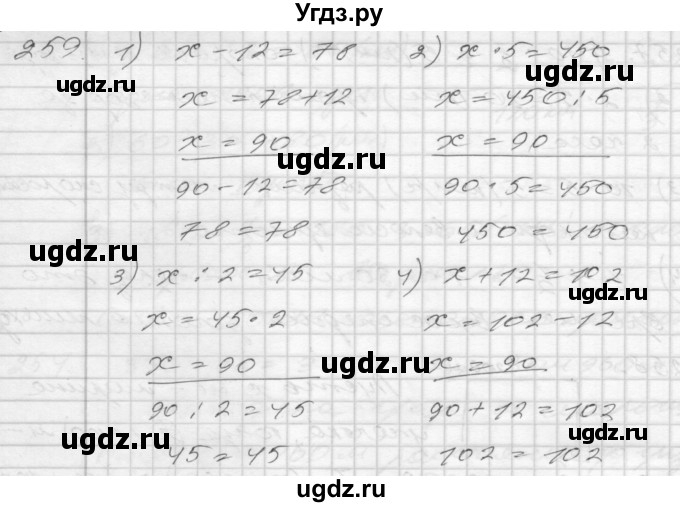 Угдз.ру
259. 1) x - 12 = 78
x = 78 + 12
x = 90
90 - 12 = 78
78 = 78
2) x · 5 = 450
x = 450 : 5
x = 90
90 · 5 = 450
450 = 450
3) x : 2 = 45
x = 45 · 2
x = 90
90 : 2 = 45
45 = 45
4) x + 12 = 102
x = 102 - 12
x = 90
90 + 12 = 102
102 = 102
ugdz.ru
ugdz.ru
ugdz.ru
ugdz.ru
ugdz.ru
ugdz.ru
ugdz.ru
ugdz.ru
ugdz.ru
ugdz.ru
ugdz.ru